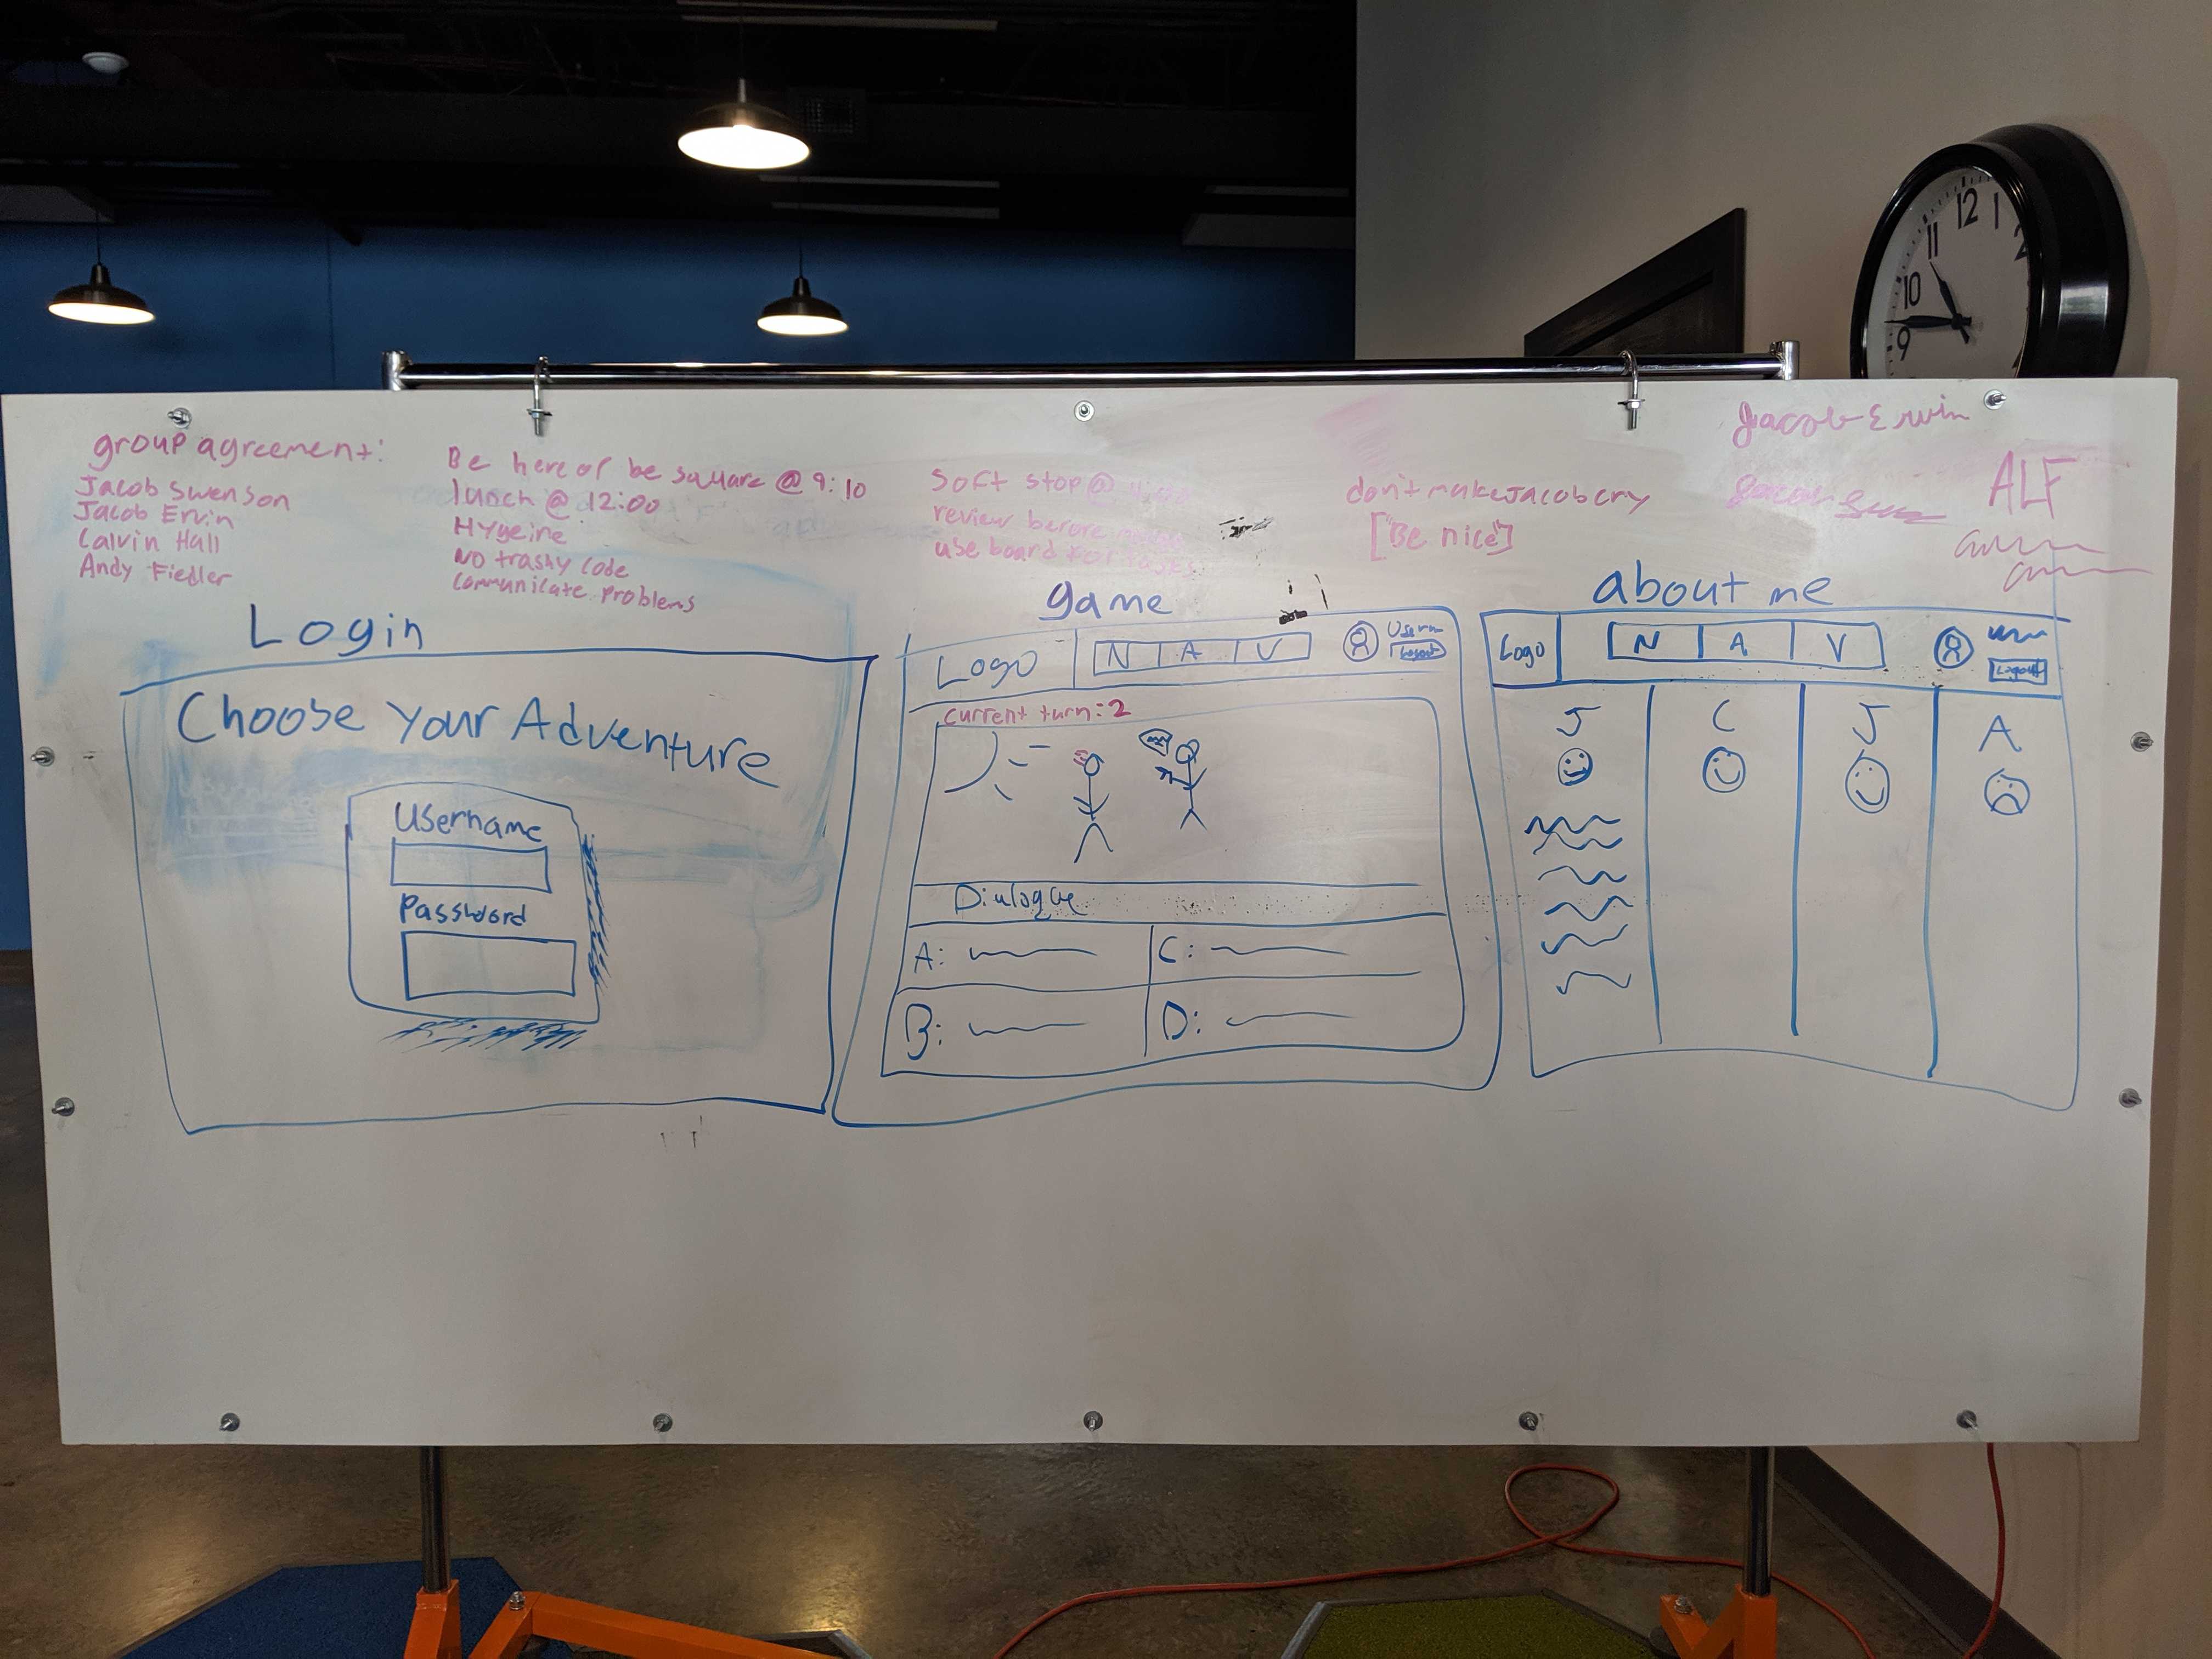 12 1
11 2
10
9
group agreement:
Jacob Swenson
Jacob Ervin
Calvin Hall
Andy Fiedler
Be here or be square @ 9:10
lunch @ 12:00
HYgeine
NO trashy code
communicate problems
Soft stop @
review before
use board for tasks
don't make Jacob cry
["Be nice"]
Jacob Ervin
Jacob
ALF
Login
Choose Your Adventure
Username
Password
game
Logo
N A V
Logout
current turn: 2
Dialogue
A:
C:
B:
D:
about me
Logo
N A V
Logout
J C J A